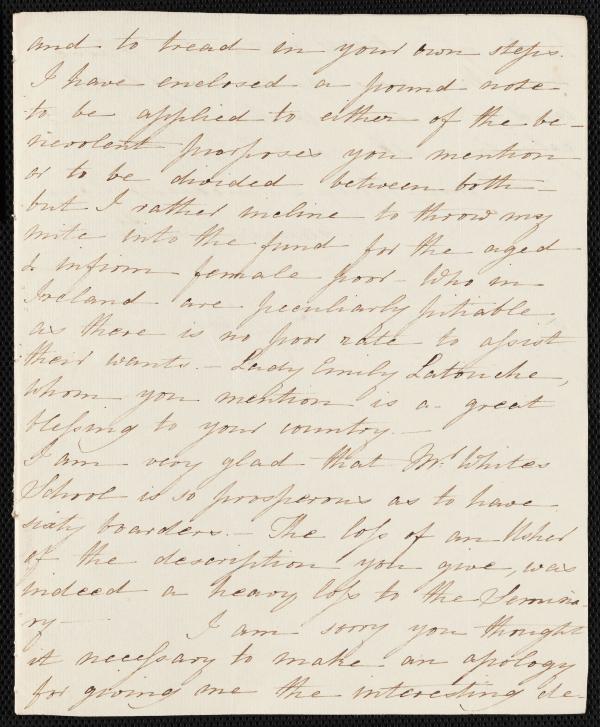 and to tread in your own steps.
I have enclosed a pound note
to be applied to either of the be-
nevolent purposes you mention
or to be divided between both—
but I rather incline to throw my
mite into the fund for the aged
& infirm female poor - Who in
Ireland are peculiarly pitiable
as there is no poor rate to assist
their wants. — Lady Emily Latouche,
whom you mention is a great
blessing to your country. —
I am very glad that Mr. Whites
School is so prosperous as to have
sixty boarders. — The loss of an Usher
of the description you give, was
indeed a heavy loss to the Semina-
ry — I am sorry you thought
it necessary to make an apology
for giving me the interesting de-